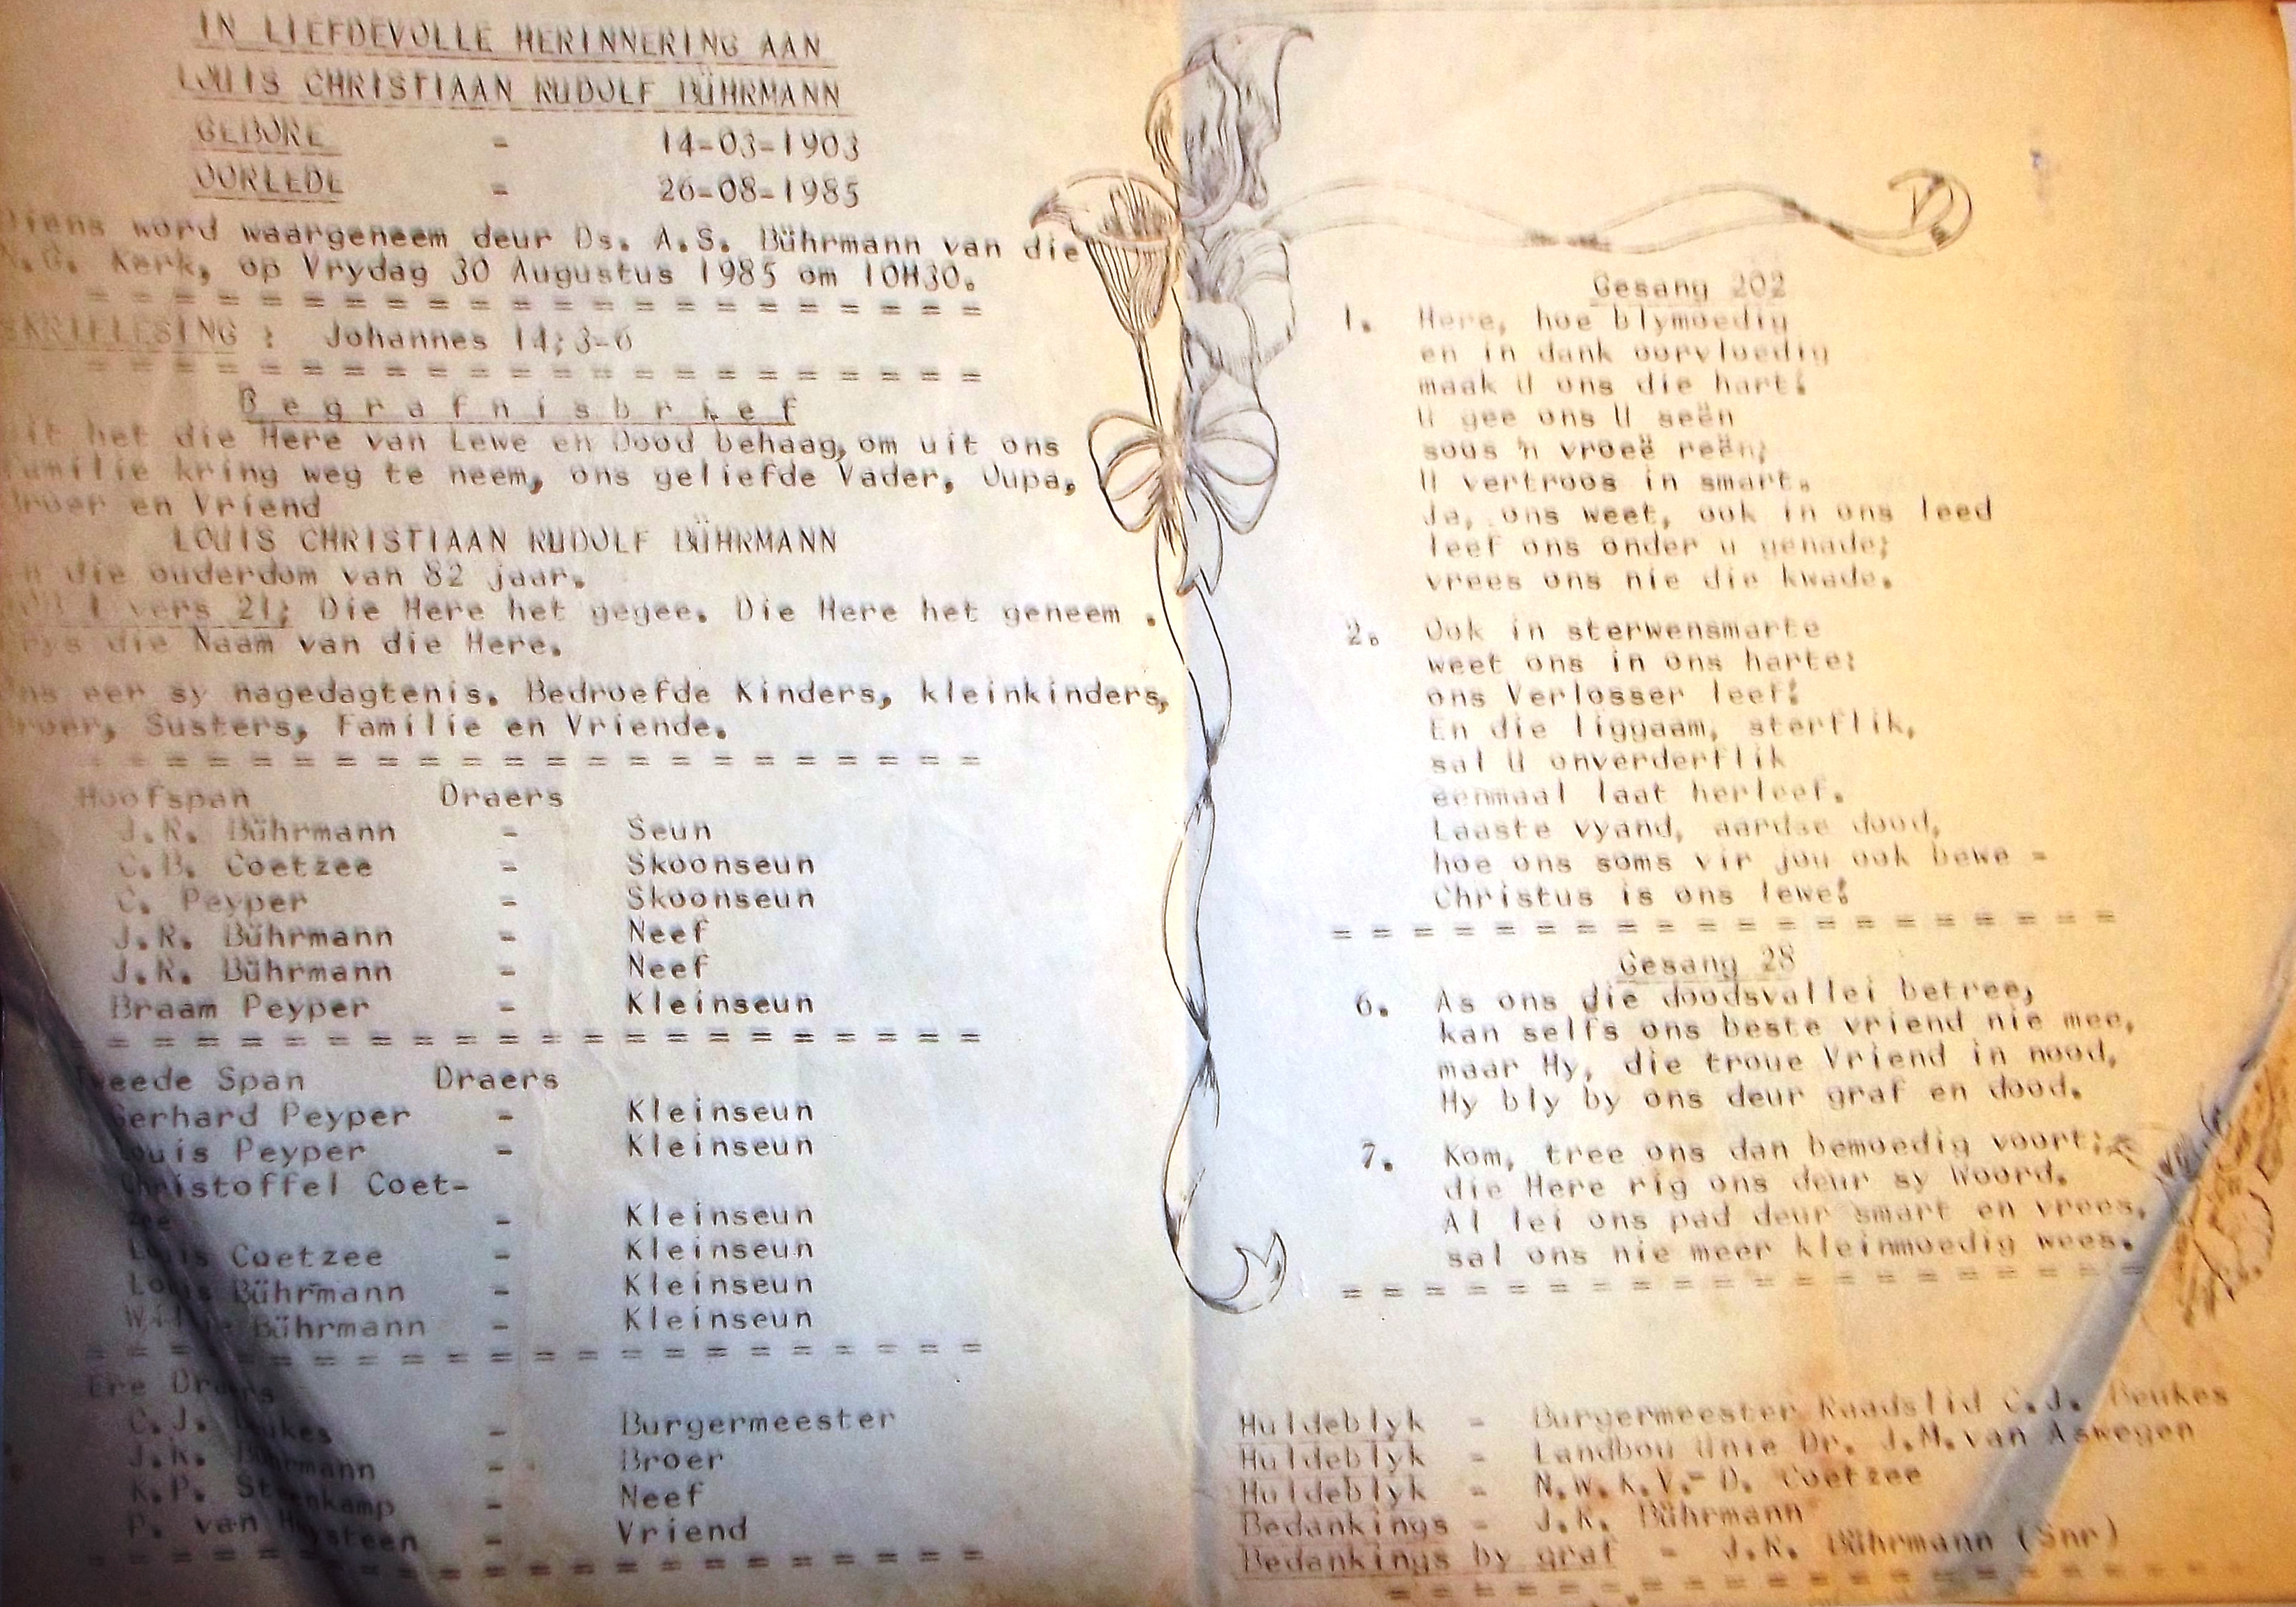 IN LIEFDEVOLLE HERINNERING AAN
LOUIS CHRISTIAAN RUDOLF BÜHRMANN
GEBORE - 14-03-1903
OORLEDE - 26-08-1985
Diens word waargeneem deur Ds. A.S. Bührmann van die
N.G. Kerk, op Vrydag 30 Augustus 1985 om 10H30.
= = = = = = = = = = = = = = = = = = = = =
SKRIFLESING : Johannes 14; 3-6
= = = = = = = = = = = = = = = = = = = = =
Begrafnisbrief
dit het die Here van Lewe en Dood behaag, om uit ons
familie kring weg te neem, ons geliefde Vader, Oupa,
Broer en Vriend
LOUIS CHRISTIAAN RUDOLF BÜHRMANN
in die ouderdom van 82 jaar.
JOB 1 vers 21; Die Here het gegee. Die Here het geneem .
Prys die Naam van die Here.
Ons eer sy nagedagtenis. Bedroefde Kinders, kleinkinders,
Broer, Susters, Familie en Vriende.
= = = = = = = = = = = = = = = = = = = = =
Hoofspan Draers
J.R. Bührmann - Seun
C.B. Coetzee - Skoonseun
C. Peyper - Skoonseun
J.R. Bührmann - Neef
J.R. Bührmann - Neef
Braam Peyper - Kleinseun
= = = = = = = = = = = = = = = = = = = = =
Tweede Span Draers
Gerhard Peyper - Kleinseun
Louis Peyper - Kleinseun
Christoffel Coet-
zee - Kleinseun
Louis Coetzee - Kleinseun
Louis Bührmann - Kleinseun
Bührmann - Kleinseun
= = = = = = = = = = = = = = = = = = = = =
Ere Draers
C.J. Beukes - Burgermeester
J.R. Bührmann - Broer
K.P. Steenkamp - Neef
P. van Huysteen - Vriend
= = = = = = = = = = = = = = = = = = = = =
Gesang 202
1. Here, hoe blymoedig
en in dank oorvloedig
maak U ons die hart!
U gee ons U seën
soos 'n vroeë reën;
U vertroos in smart.
Ja, ons weet, ook in ons leed
leef ons onder u genade;
vrees ons nie die kwade.
2. Ook in sterwensmarte
weet ons in ons harte:
ons Verlosser leef!
En die liggaam, sterflik,
sal U onverderflik
eenmaal laat herleef.
Laaste vyand, aardse dood,
hoe ons soms vir jou ook bewe -
Christus is ons lewe!
= = = = = = = = = = = = = = = = = = = =
Gesang 28
6. As ons die doodsvallei betree,
kan selfs ons beste vriend nie mee,
maar Hy, die troue Vriend in nood,
Hy bly by ons deur graf en dood.
7. Kom, tree ons dan bemoedig voort;
die Here rig ons deur sy Woord.
Al lei ons pad deur smart en vrees,
sal ons nie meer kleinmoedig wees.
= = = = = = = = = = = = = = = = = = = =
Huldeblyk - Burgermeester Raadslid C.J. Beukes
Huldeblyk - Landbou Unie Dr. J.M. van Aswegen
Huldeblyk - N.W.K.V.- D. Coetzee
Bedankings - J.R. Bührmann
Bedankings by graf - J.R. Bührmann (Snr)
= = = = = = = = = = = = = = = = = = = =